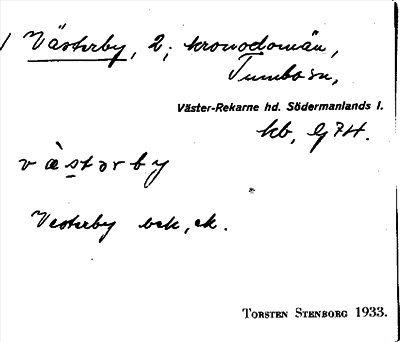 Västerby, 2; kronodomän,
Tumbo sn,
Väster-Rekarne hd. Södermanlands l.
kb, G74.
västərby
Vesterby bek, ek.
TORSTEN STENBORG 1933.